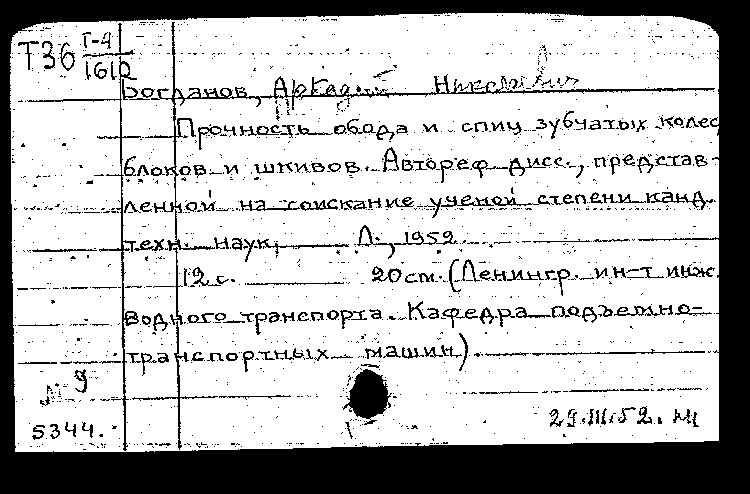 Т36 Г-4
1612
Богданов, Аркадий Николаевич
Прочность обода и спиц зубчатых колес
блоков и шкивов. Автореф. дисс., представ-
ленной на соискание ученой степени канд.
техн. наук, Л., 1952
12 с. 20 см. (Ленингр. ин-т инж.
водного транспорта. Кафедра подъемно-
транспортных машин).
9
5344.
29.III.52.